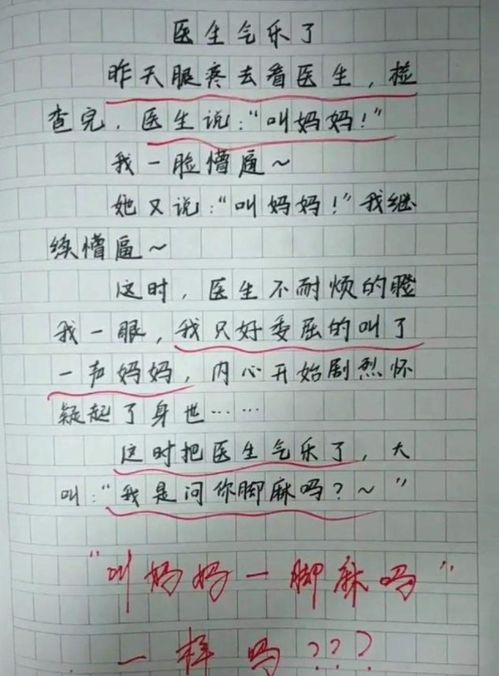 医生气乐了
昨天腿疼去看医生，检
查完，医生说：“叫妈妈！”
我一脸懵逼～
她又说：“叫妈妈！”我继
续懵逼～
这时，医生不耐烦的瞪
我一眼，我只好委屈的叫了
一声妈妈，内心开始剧烈怀
疑起了身世……
这时把医生气乐了，大
叫：“我是问你脚麻吗？～”
“叫妈妈—脚麻吗”
一样吗？？？